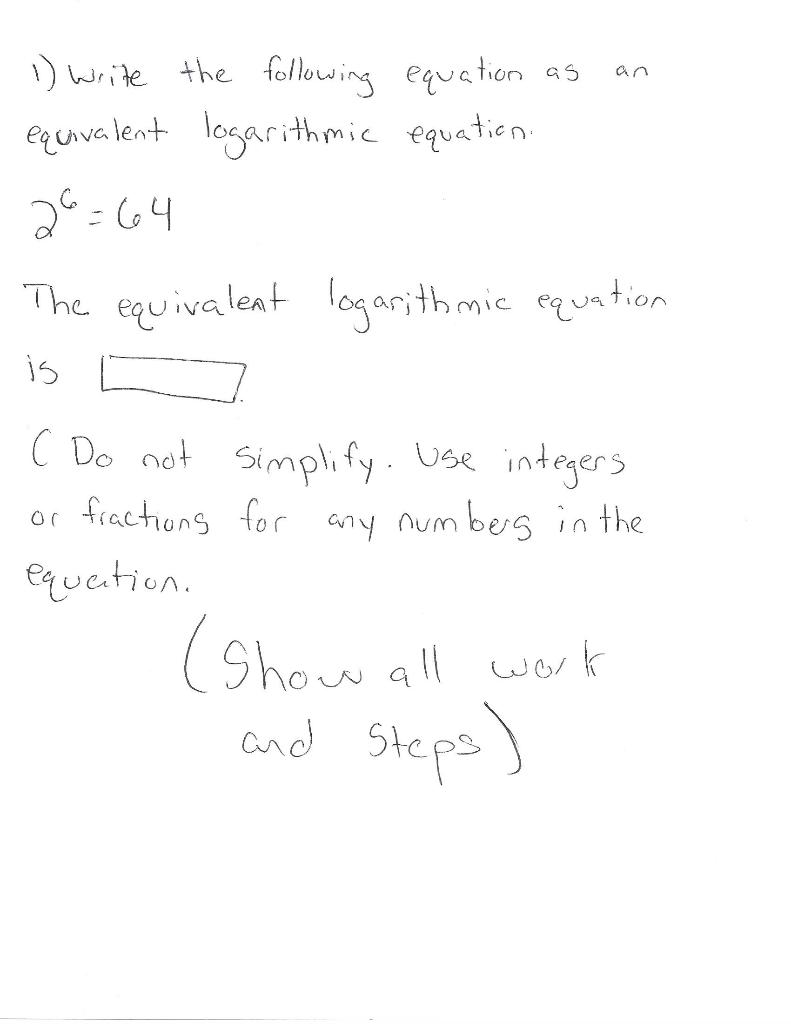 1) Write the following equation as an
equivalent logarithmic equation.
2⁶ = 64
The equivalent logarithmic equation
is
( Do not simplify. Use integers
or fractions for any numbers in the
equation.
(Show all work
and steps)